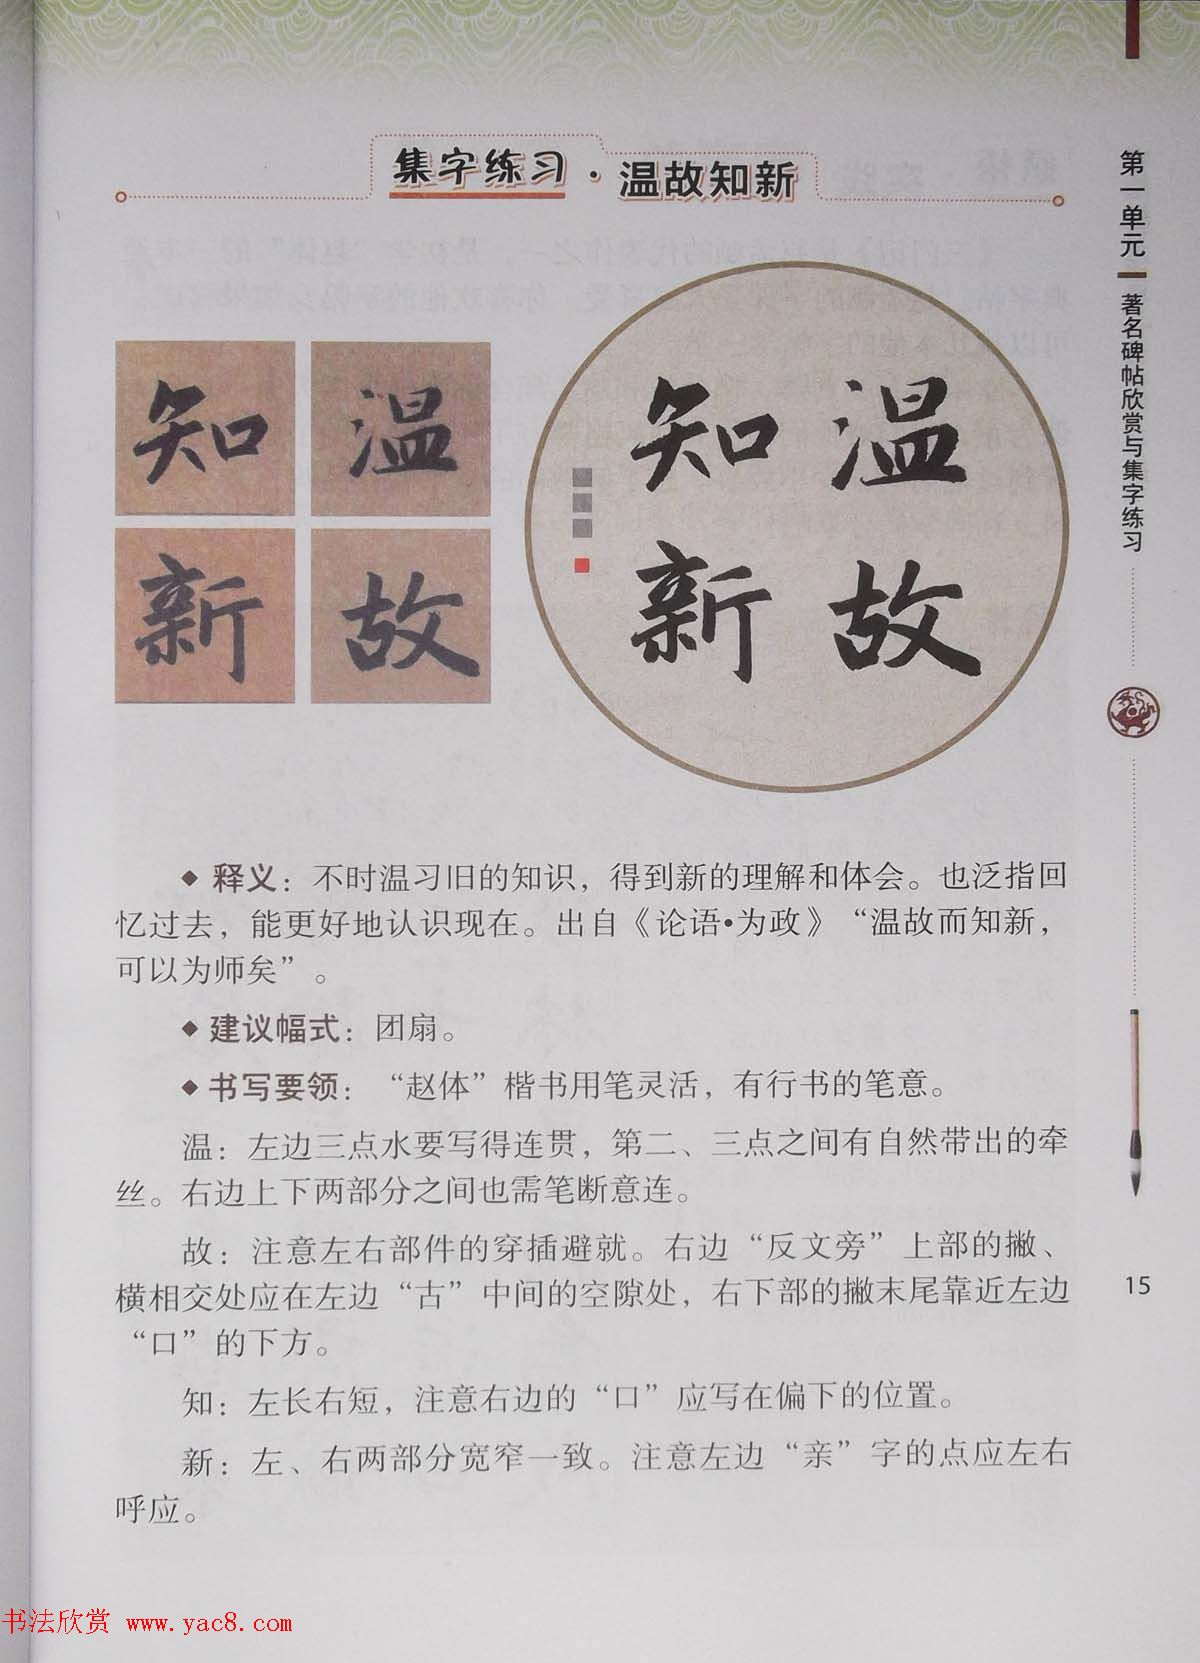 集字练习·温故知新
知温
新故
温故
知新
◆释义：不时温习旧的知识，得到新的理解和体会。也泛指回
忆过去，能更好地认识现在。出自《论语•为政》“温故而知新，
可以为师矣”。
◆建议幅式：团扇。
◆书写要领：“赵体”楷书用笔灵活，有行书的笔意。
温：左边三点水要写得连贯，第二、三点之间有自然带出的牵
丝。右边上下两部分之间也需笔断意连。
故：注意左右部件的穿插避就。右边“反文旁”上部的撇、
横相交处应在左边“古”中间的空隙处，右下部的撇末尾靠近左边
“口”的下方。
知：左长右短，注意右边的“口”应写在偏下的位置。
新：左、右两部分宽窄一致。注意左边“亲”字的点应左右
呼应。
第一单元
著名碑帖欣赏与集字练习
15
书法欣赏 www.yac8.com